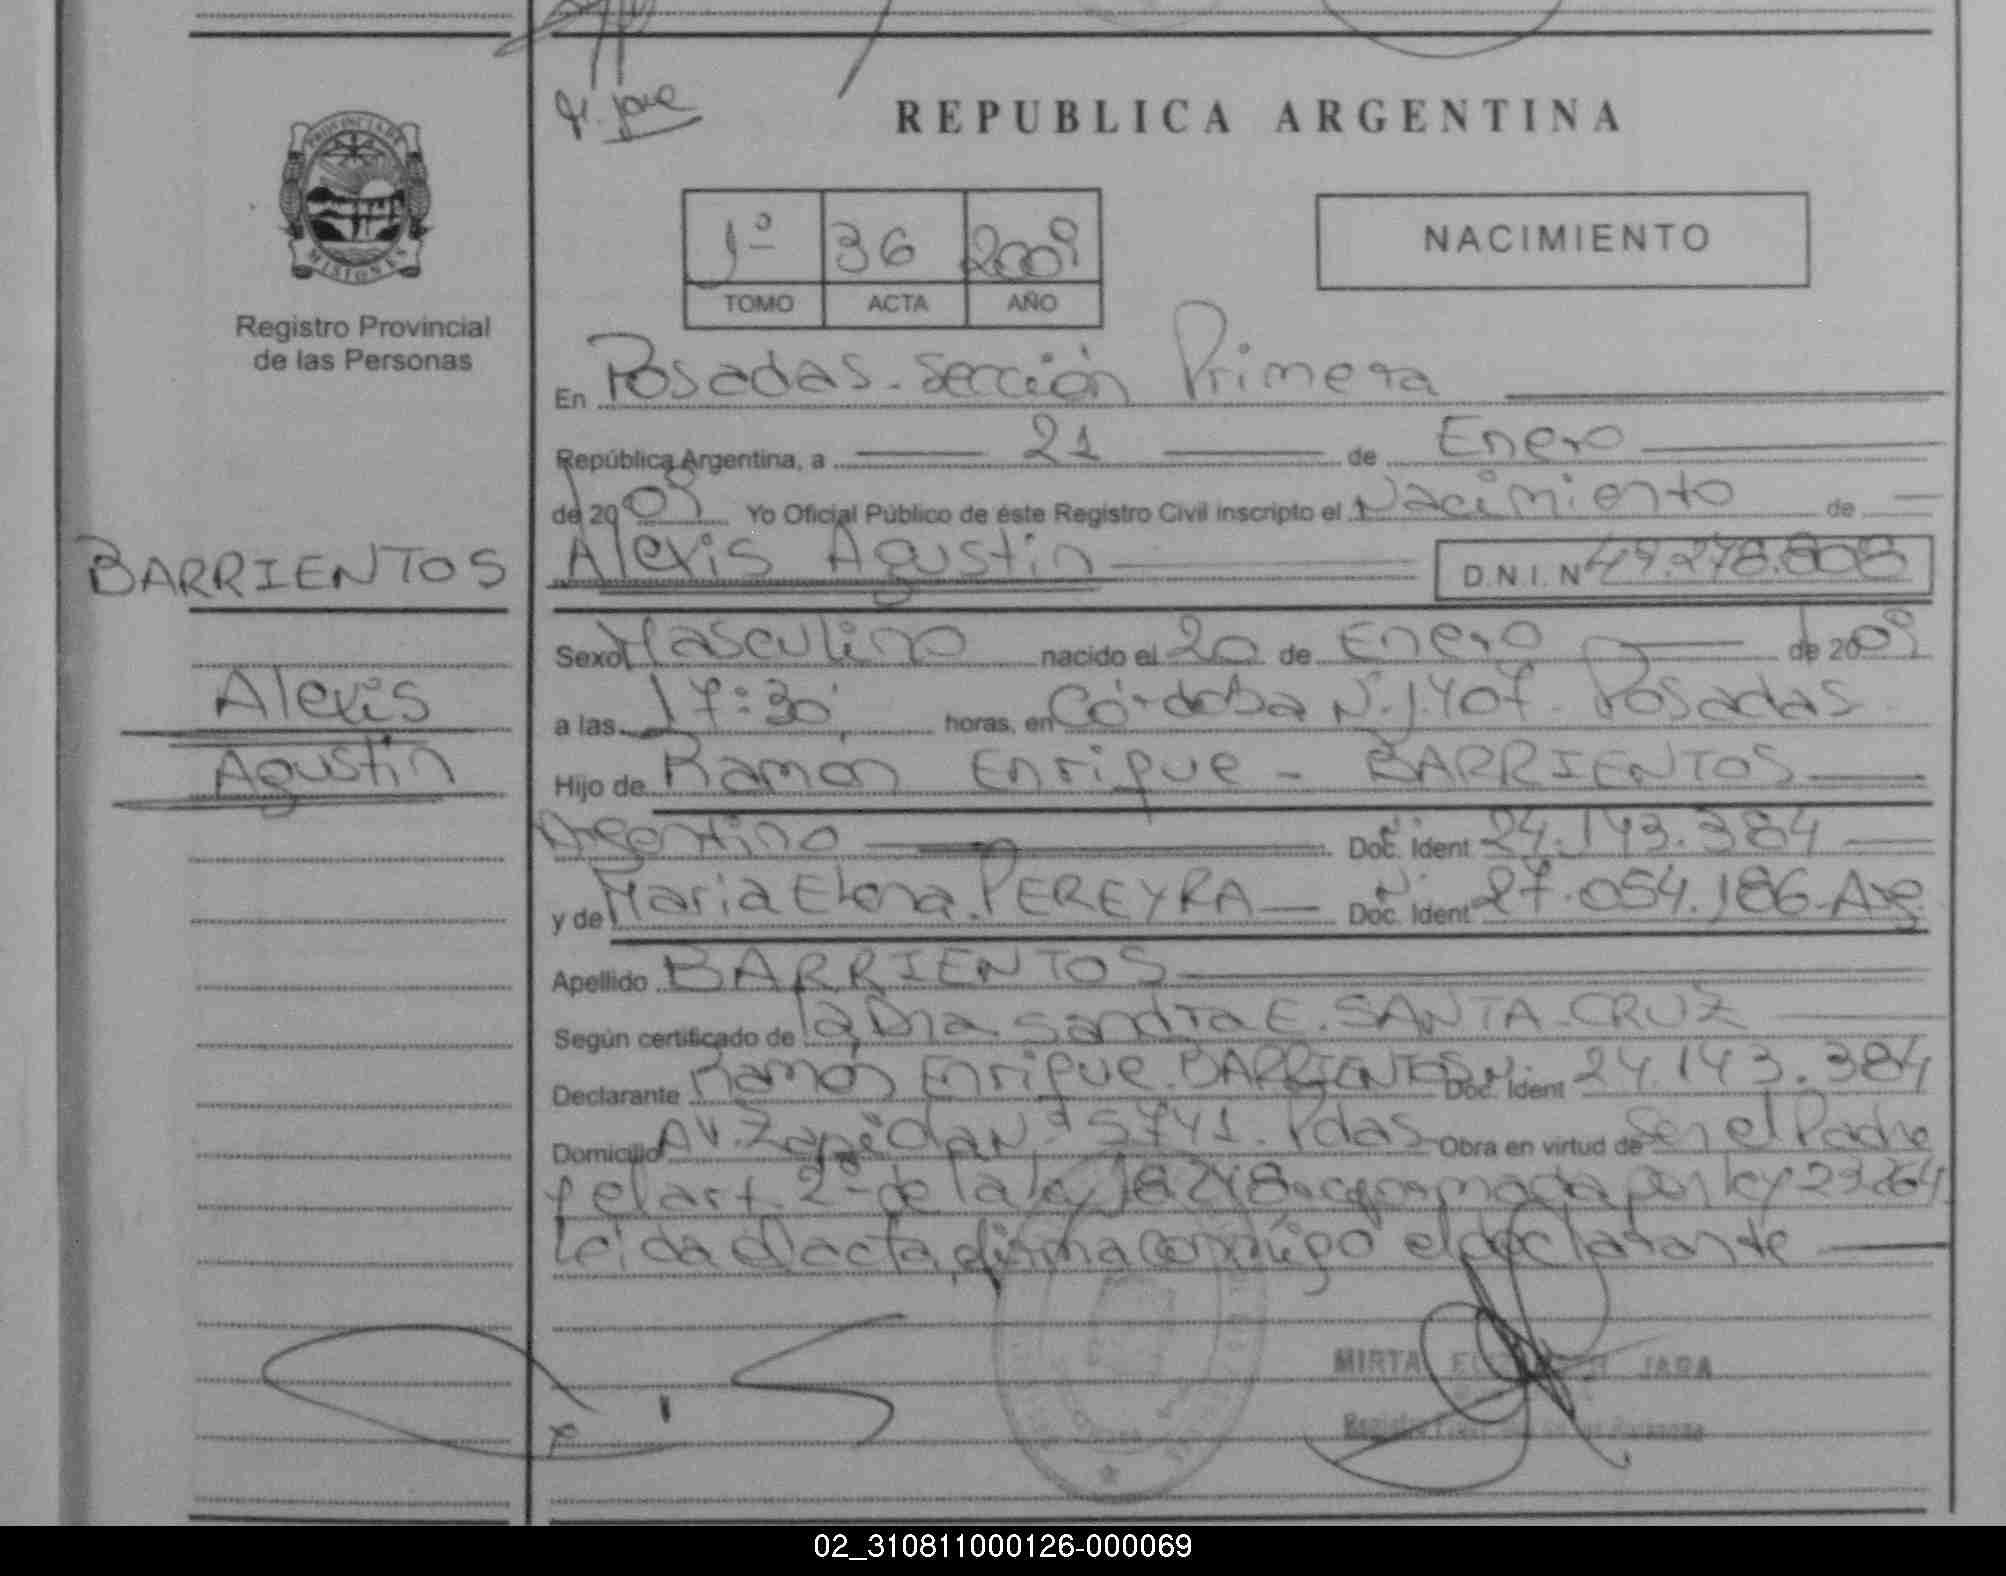 REPUBLICA ARGENTINA
PROVINCIA DE
MISIONES
Registro Provincial
de las Personas
1º 36 2009
TOMO ACTA AÑO
NACIMIENTO
En Posadas - Sección Primera
República Argentina, a 21 de Enero
de 2009 Yo Oficial Público de éste Registro Civil inscripto el Nacimiento de
BARRIENTOS
Alexis Agustin D.N.I. Nº 49.278.808
Sexo Masculino nacido el 20 de Enero de 2009
Alexis
a las 17:30 horas, en Córdoba Nº 1.407 - Posadas
Agustin
Hijo de Ramón Enrique - BARRIENTOS
Argentino Doc. Ident Nº 24.143.384
y de Maria Elena PEREYRA Doc. Ident Nº 27.054.186 - Arg
Apellido BARRIENTOS
Según certificado de la Dra Sandra E. SANTA CRUZ
Declarante Ramón Enrique BARRIENTOS Doc. Ident Nº 24.143.384
Domicilio AV. Zapiola Nº 5741 - Pdas Obra en virtud de Ser el Padre
y el art. 2º de la ley 18248 por ley 23264
Leida el acta, firma conmigo el declarante
MIRTA JARA
02_310811000126-000069